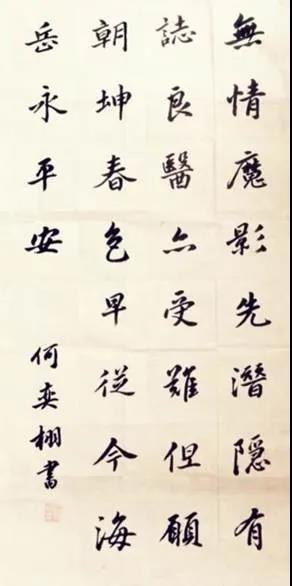 無情魔影先潛隱有
誌良醫亦受難但願
朝坤春色早從今海
岳永平安
何奕栩書